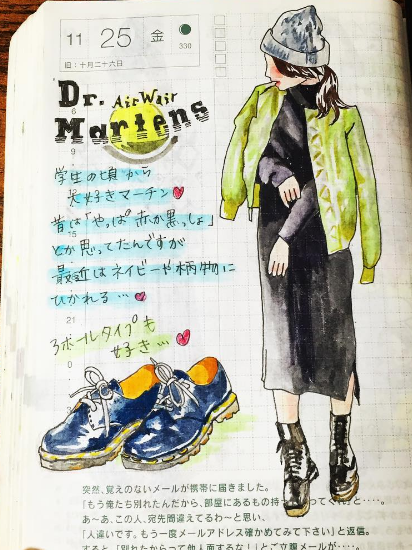 11 25 金
330
旧:十月二十六日
Dr. AirWair
Martens
学生の頃から
大好きマーチン
昔は「やっぱ赤か黒っしょ」
とか思ってたんですが
最近はネイビーや柄物に
ひかれる…
3ホールタイプも
好き…
6
9
15
21
0
突然、覚えのないメールが携帯に届きました。
「もう俺たち別れたんだから、部屋にあるもの持
ってくれ」と‥‥。
あ〜あ、この人、宛先間違えてるわ〜と思い、
「人違いです。もう一度メールアドレス確かめてみて下さい」と返信。
すると「別れたからって他人面するな!」とご立腹メールが‥‥。